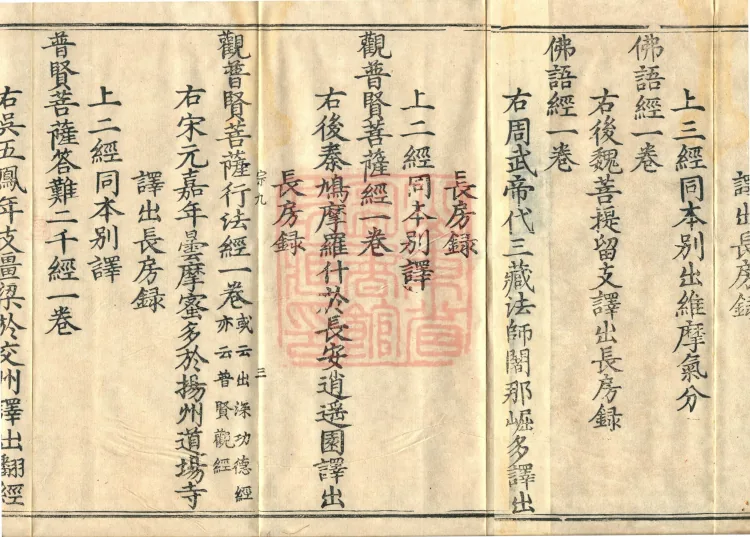 譯出長房録
上三經同本別出維摩氣分
佛語經一巻
右後魏菩提留支譯出長房録
佛語經一巻
右周武帝代三藏法師闍那崛多譯出
長房録
上二經同本別譯
觀普賢菩薩經一巻
右後秦鳩摩羅什於長安逍遥園譯出
長房録
宗九 三
觀普賢菩薩行法經一巻 或云出深功德經
亦云普賢觀經
右宋元嘉年曇摩蜜多於揚州道場寺
譯出長房録
上二經同本別譯
普賢菩薩答難二千經一巻
右吳五鳳年支畺梁於交州譯出翻經